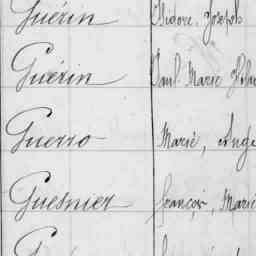 Guérin Isidore, Joseph
Guérin Paul Marie
Guerro Marie, Ange
Guesnier françois, Marie